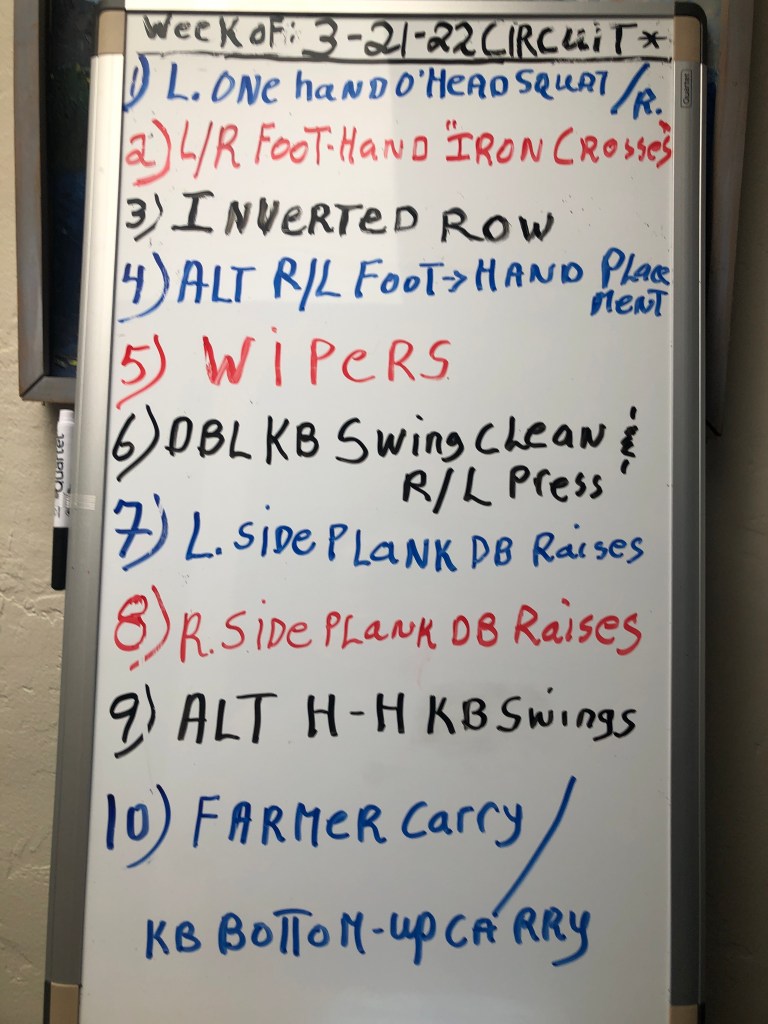 Week OF: 3-21-22 CIRCUIT *
1) L. ONE HAND O'HEAD SQUAT / R.
2) L/R FOOT-HAND "IRON CROSSES"
3) INVERTED ROW
4) ALT R/L FOOT→HAND PLACE
MENT
5) WIPERS
6) DBL KB Swing CLEAN &
R/L Press
7) L. SIDE PLANK DB Raises
8) R. SIDE PLANK DB Raises
9) ALT H-H KB Swings
10) FARMER Carry /
KB BOTTOM-UP CARRY
Quartet
Quartet